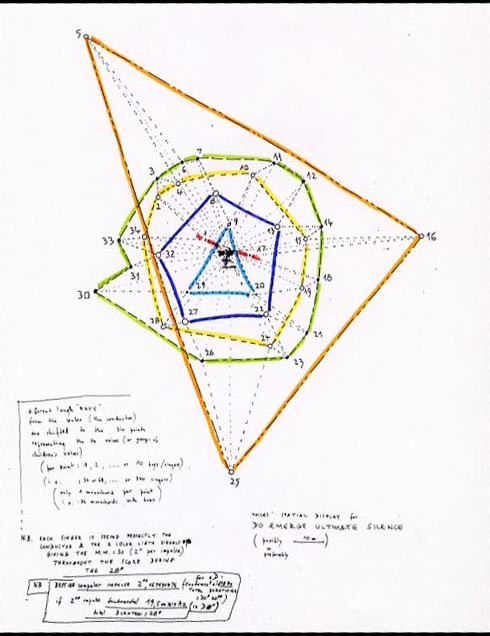 5
7
11
6
3
4
10
12
2
8
14
9
13
15
16
34
33
32
17
1
31
18
30
29
20
19
28
27
22
21
24
26
23
25
different length "RAYS"
from the center (the conductor)
are shifted to the 34 points
representing the 34 voices (or groups of
children's voices)
(per point: 1, 2, .... or 10 boys/singers)
(i.e. : 34 or 68, ... or 340 singers)
(only 1 monochord per point)
(i.e. : 34 monochords with bows)
VOICES' SPATIAL DISPLAY for
DO EMERGE ULTIMATE SILENCE
(possibly
preferably
N.B. EACH SINGER IS SEEING PERFECTLY THE
CONDUCTOR & THE 2 COLOR LIGTH SIGNALS
GIVING THE M.M.:30 (2" per impulse)
THROUGHOUT THE SCORE DURING
THE 28'
NB
computer impulse
TOTAL DURATION
if 2" impulse fundamental
total DURATION: 28'